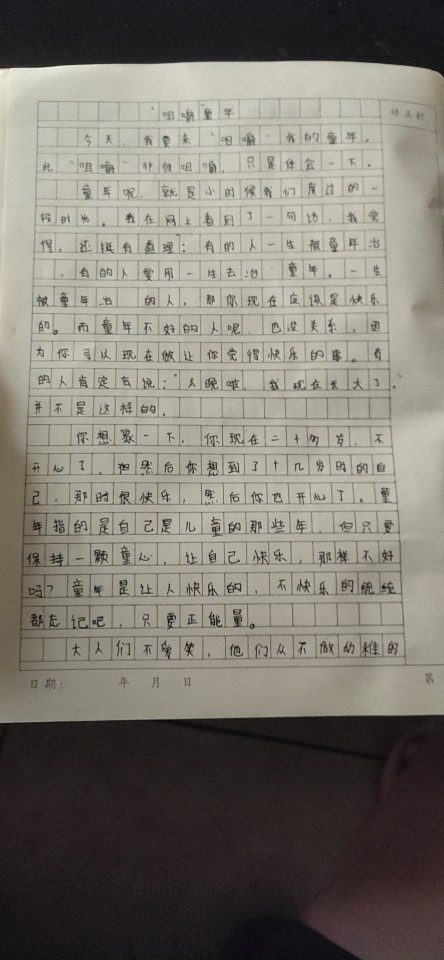 “咀嚼”童年
修正栏
今天，我要来“咀嚼”我的童年。
此“咀嚼”非彼咀嚼，只是体会一下。
童年呢，就是小时候我们度过的一
段时光。我在网上看到了一句话，我觉
得，还挺有道理：有的人一生被童年治
，有的人要用一生去治 童年。一生
被童年治 的人，那你现在应该是快乐
的。而童年不好的人呢，也没关系，因
为你可以现在做让你觉得快乐的事。有
的人肯定会说：“太晚啦，我现在长大了。”
并不是这样的。
你想象一下，你现在二十多岁，不
开心了，然后你想到了十几岁时的自
己，那时很快乐，然后你也开心了。童
年指的是自己是儿童的那些年，但只要
保持一颗童心，让自己快乐，那样不好
吗？童年是让人快乐的，不快乐的统统
都忘记吧，只要正能量。
大人们不爱笑，他们从不做幼稚的
日期： 年 月 日 第